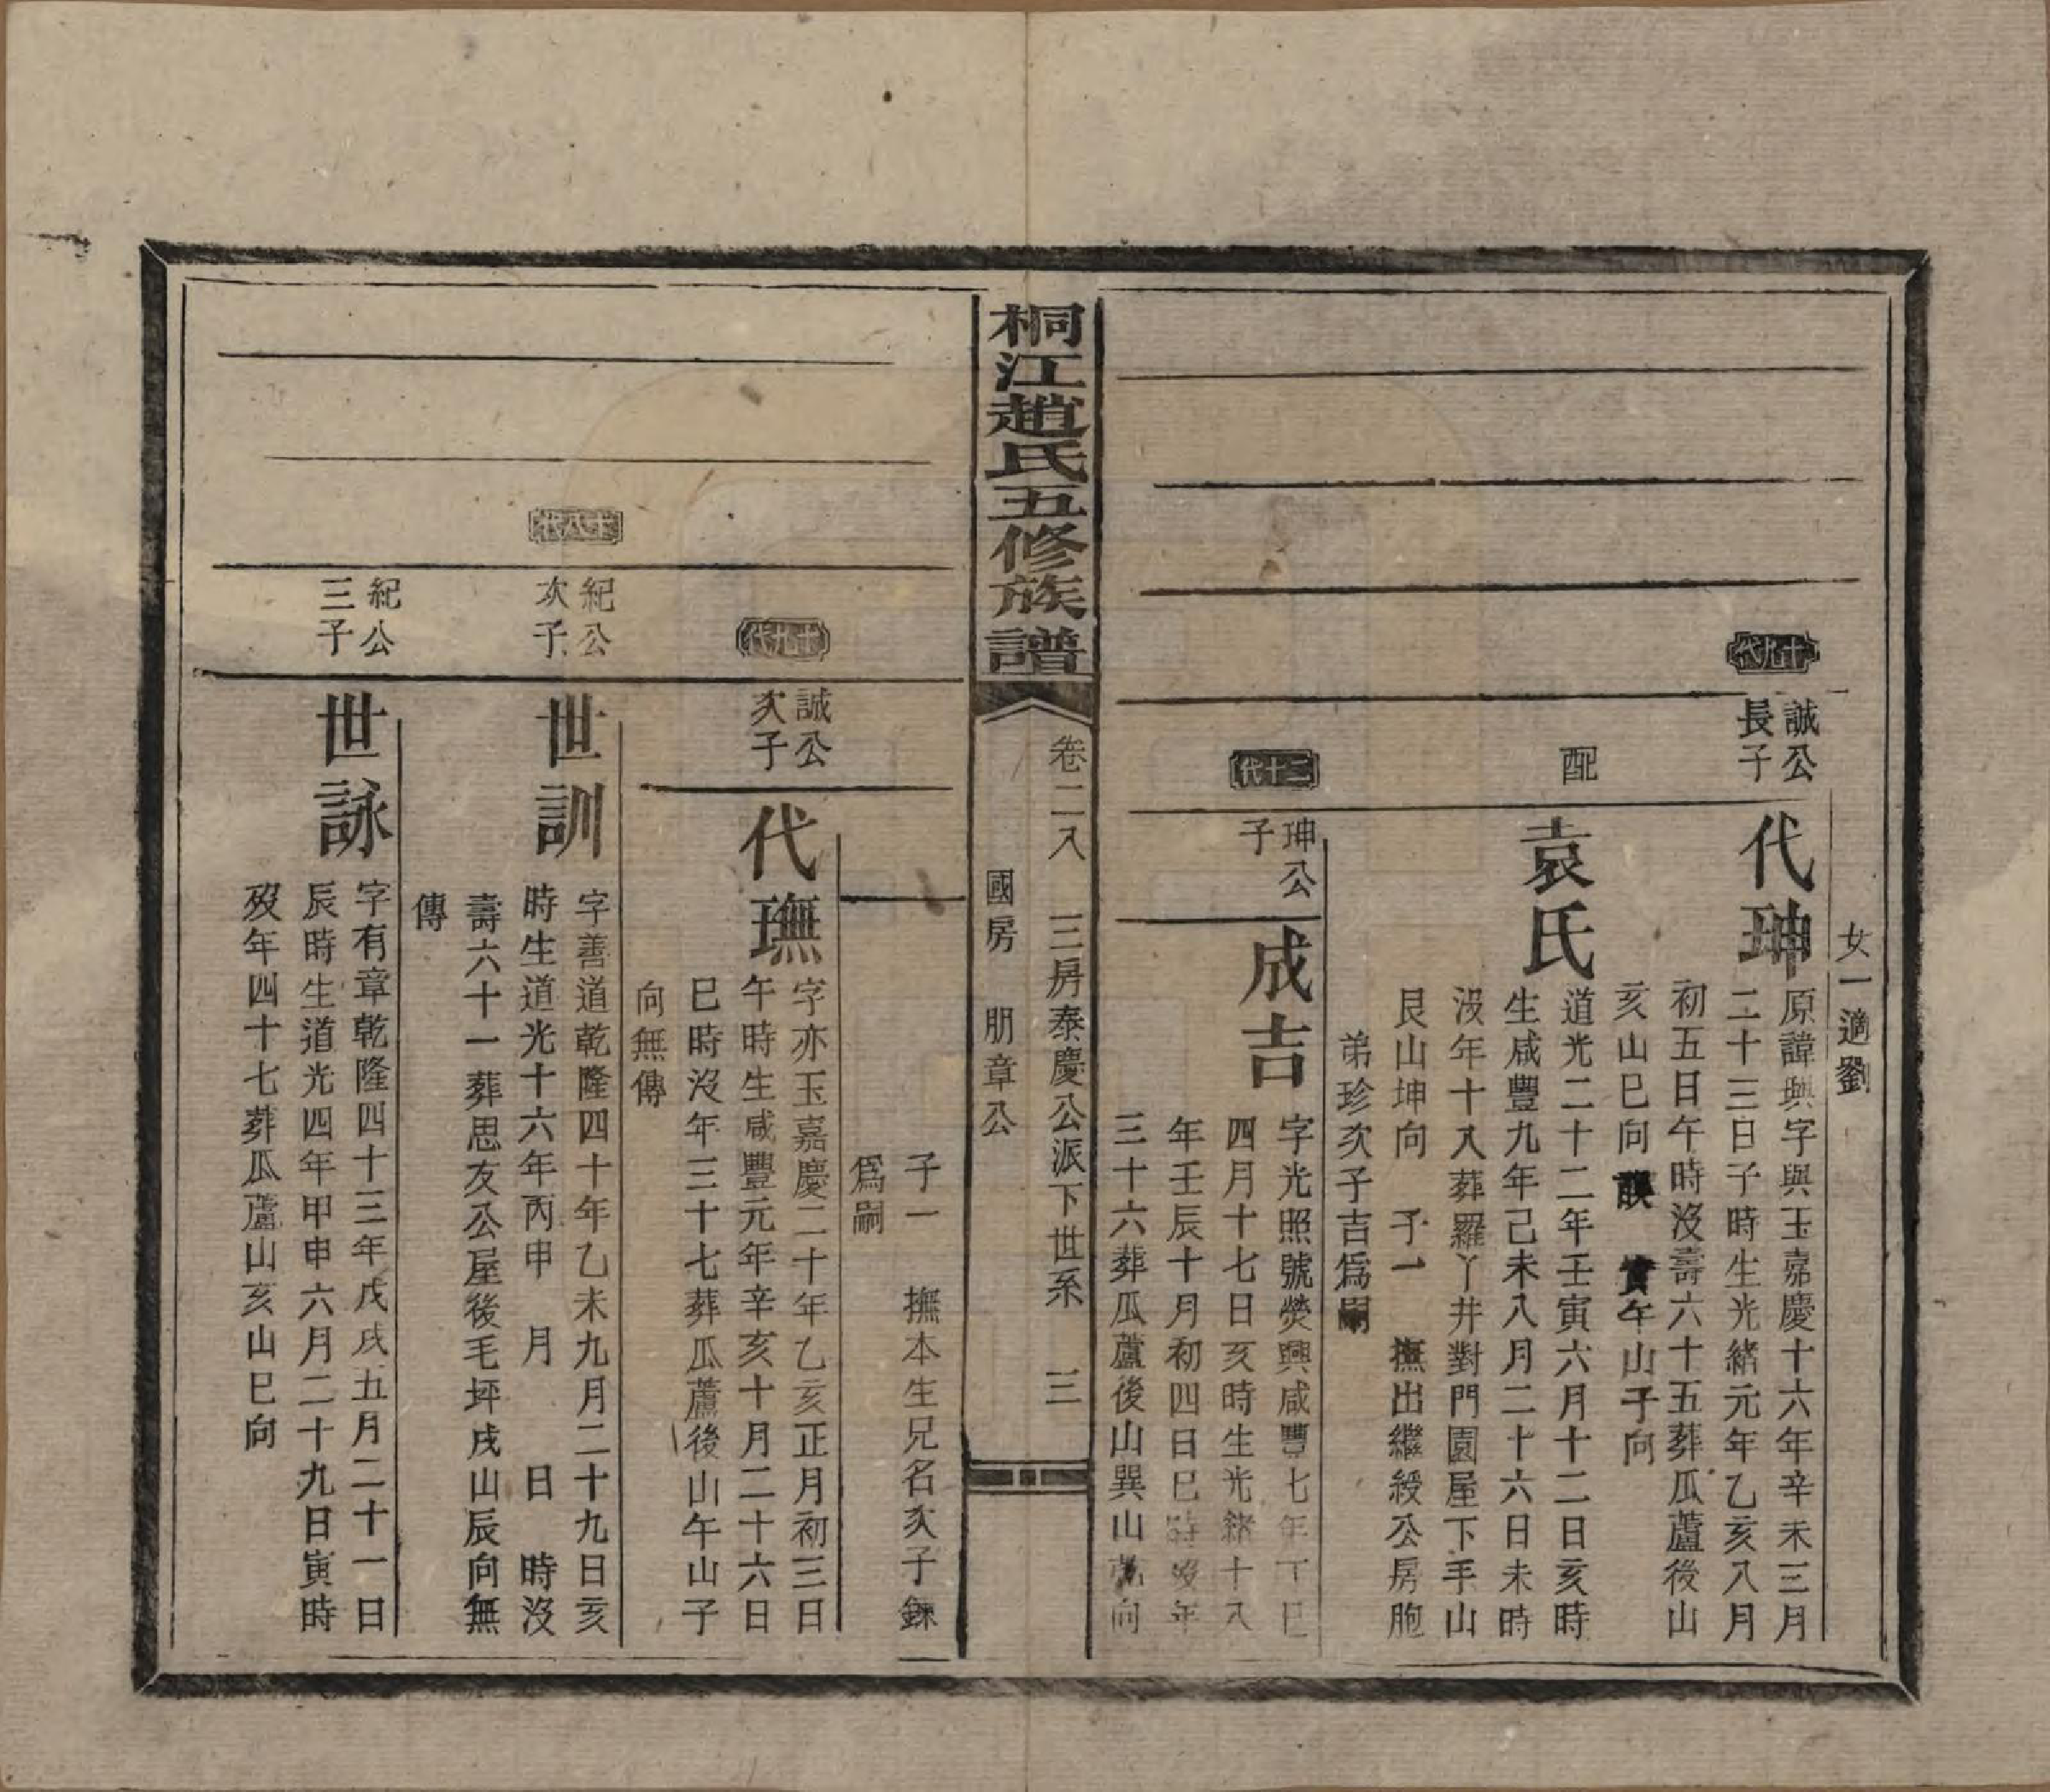 女一適劉
十九代
誠公
長子
代珅
原諱興字興玉嘉慶十六年辛未三月
二十三日子時生光緒元年乙亥八月
初五日午時沒壽六十五葬瓜蘆後山
亥山巳向誤實午山子向
配
袁氏
道光二十二年壬寅六月十二日亥時
生咸豐九年己未八月二十六日未時
沒年十八葬羅丫井對門園屋下手山
艮山坤向 子一 撫出繼綬公房胞
弟珍次子吉為嗣
二十代
珅公
子
成吉
字光照號熒興咸豐七年丁巳
四月十七日亥時生光緒十八
年壬辰十月初四日巳時沒年
三十六葬瓜蘆後山巽山向
桐江趙氏五修族譜
卷二八 三房泰慶公派下世系 三
國房 朋章公
子一 撫本生兄名次子錸
為嗣
十九代
誠公
次子
代璑
字亦玉嘉慶二十年乙亥正月初三日
午時生咸豐元年辛亥十月二十六日
巳時沒年三十七葬瓜蘆後山午山子
向無傳
十八代
紀公
次子
世訓
字善道乾隆四十年乙未九月二十九日亥
時生道光十六年丙申 月 日 時沒
壽六十一葬思友公屋後毛坪戌山辰向無
傳
紀公
三子
世詠
字有章乾隆四十三年戊戌五月二十一日
辰時生道光四年甲申六月二十九日寅時
歿年四十七葬瓜蘆山亥山巳向